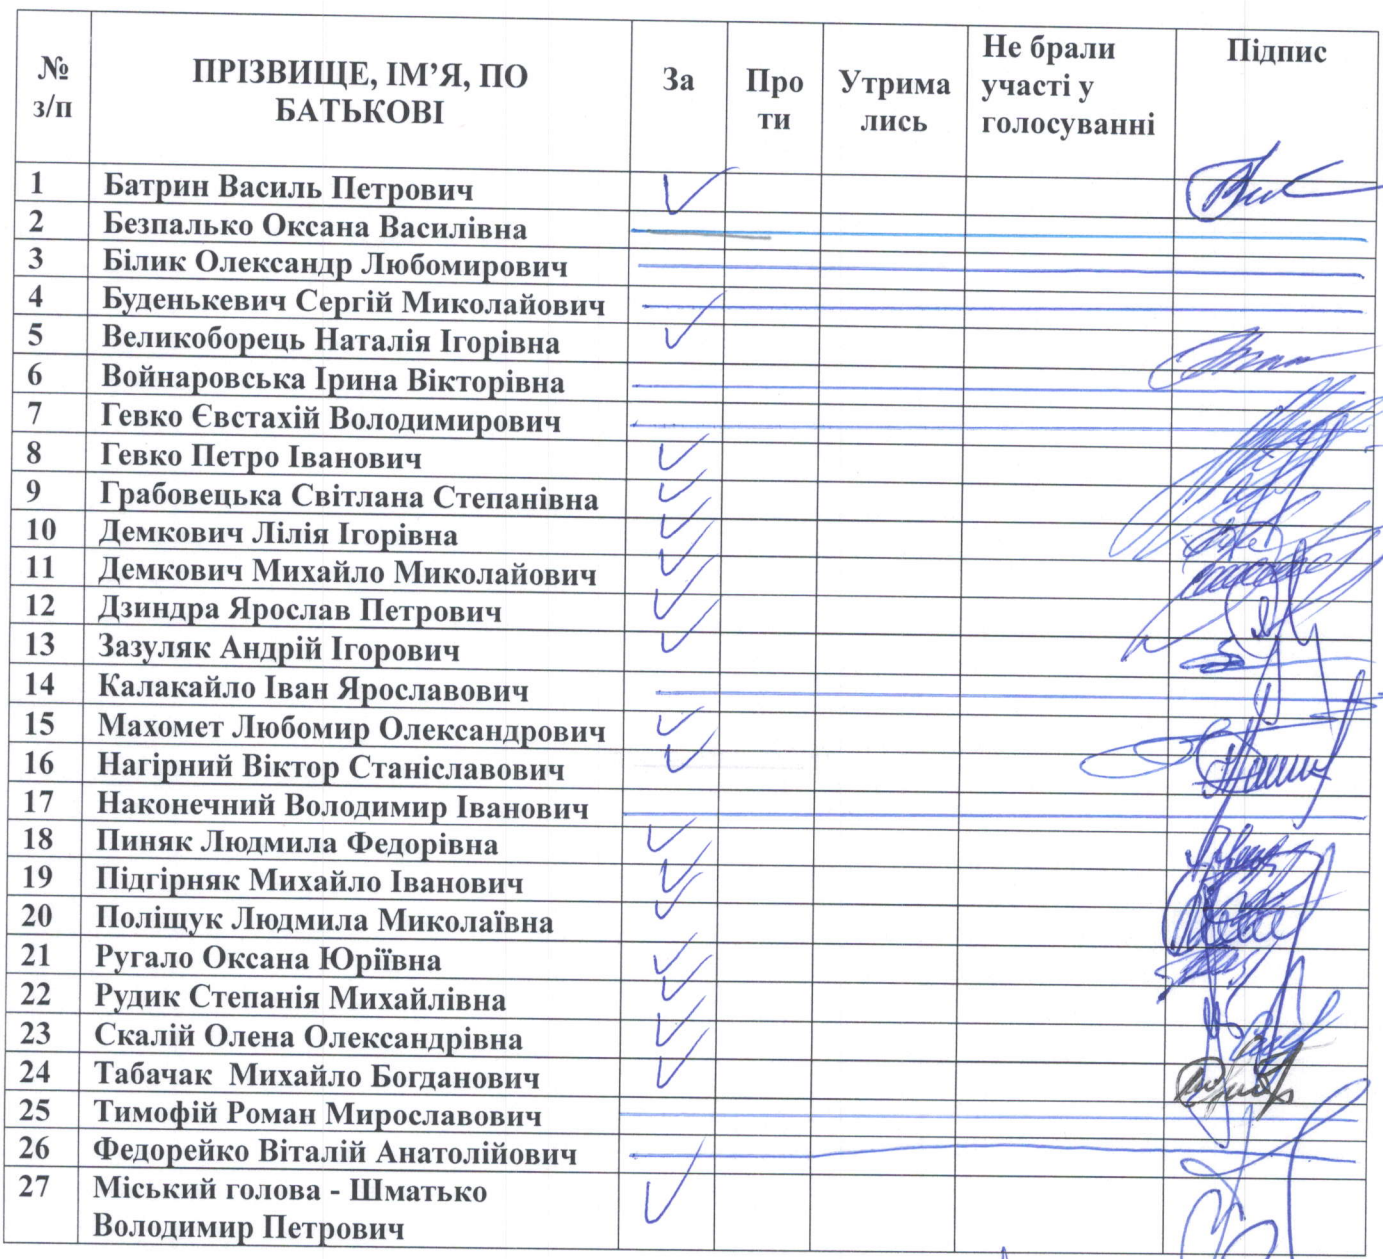 № з/п ПРІЗВИЩЕ, ІМ’Я, ПО БАТЬКОВІ За Про ти Утрима лись Не брали участі у голосуванні Підпис
1 Батрин Василь Петрович ✓
2 Безпалько Оксана Василівна
3 Білик Олександр Любомирович
4 Буденькевич Сергій Миколайович
5 Великоборець Наталія Ігорівна ✓
6 Войнаровська Ірина Вікторівна
7 Гевко Євстахій Володимирович
8 Гевко Петро Іванович ✓
9 Грабовецька Світлана Степанівна ✓
10 Демкович Лілія Ігорівна ✓
11 Демкович Михайло Миколайович ✓
12 Дзиндра Ярослав Петрович ✓
13 Зазуляк Андрій Ігорович ✓
14 Калакайло Іван Ярославович
15 Махомет Любомир Олександрович ✓
16 Нагірний Віктор Станіславович ✓
17 Наконечний Володимир Іванович
18 Пиняк Людмила Федорівна ✓
19 Підгірняк Михайло Іванович ✓
20 Поліщук Людмила Миколаївна ✓
21 Ругало Оксана Юріївна ✓
22 Рудик Степанія Михайлівна ✓
23 Скалій Олена Олександрівна ✓
24 Табачак Михайло Богданович ✓
25 Тимофій Роман Мирославович
26 Федорейко Віталій Анатолійович
27 Міський голова - Шматько ✓
Володимир Петрович